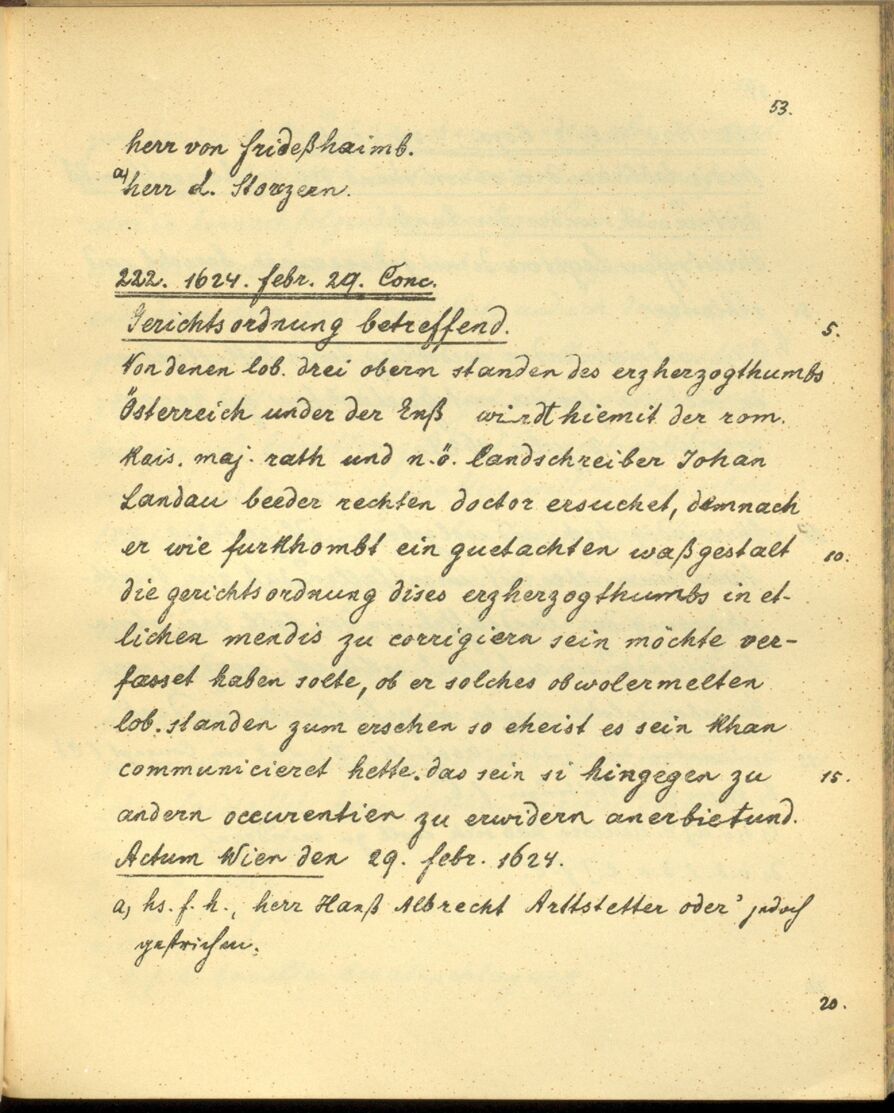 53.
herr von Frideßhaimb.
a) herr d. Storzern.
222. 1624. febr. 29. Conc.
Gerichtsordnung betreffend.
5.
Von denen lob. drei obern standen des erzherzogthumbs
Österreich under der Enß wirdt hiemit der rom.
Kais. maj. rath und n.ö. Landschreiber Johan
Landau beeder rechten doctor ersuchet, demnach
er wie furkhombt ein guetachten waßgestalt
10.
die gerichtsordnung dises erzherzogthumbs in et-
lichen mendis zu corrigiern sein möchte ver-
fasset haben solte, ob er solches obwolermelten
lob. standen zum ersehen so eheist es sein khan
communicieret hette. das sein si hingegen zu
15.
andern occurentien zu erwidern anerbietund.
Actum Wien den 29. febr. 1624.
a) hs. f. h., herr Hanß Albrecht Arttstetter oder' jedoch
gestrichen.
20.